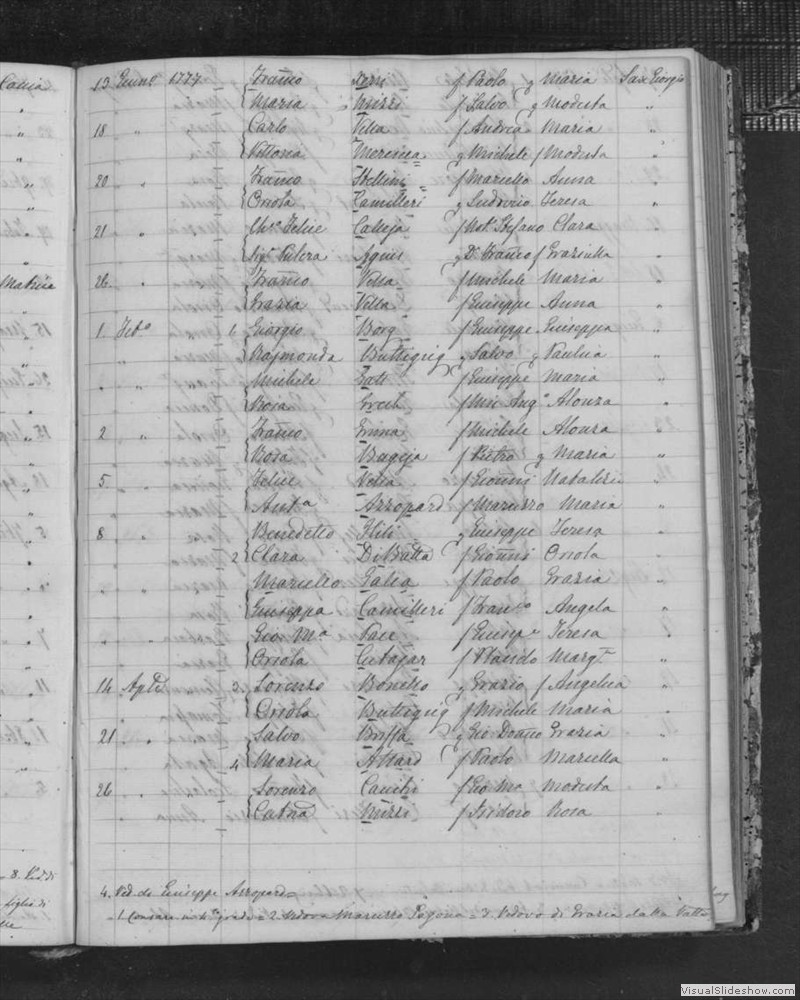 Catnia
Matnia
13 Genn.o 1777 Franco Ferri f Paolo q Maria San Giorgio
Maria Mizzi f Salvo q Modesta "
18 " Carlo Vella f Andrea Maria "
Vittoria q Michele f Modesta "
20 " Franco Stellini f Marcello Anna "
Orsola Camilleri q Ludovico Teresa "
21 " Felice Calleja f Not. Stefano Clara "
Agius D. Franco f Graziulla "
26 " Franco Vella f Michele Maria "
Grazia Vella f Giuseppe Anna "
1 Feb.o 1 Giorgio Borg f Giuseppe Giuseppa "
" " Raymonda Buttigieg q Salvo q Paulica "
" " Michele Gatt f Giuseppe Maria "
Rosa Grech f Mro Ang.o Alonza "
2 " Franco f Michele Alonza "
Rosa Bugeja f Pietro q Maria "
5 " Felice Vella f Gionni Natalizi "
Ant.a Azzopard f Maruzzo Maria "
8 " Benedetto q Giuseppe Teresa "
2 Clara DiBatta f Gionni Orsola "
Marcello Galea f Paolo Grazia "
Giuseppa Camilleri f Fran.co Angela "
" " Gio Ma Pace f Giusep.e Teresa "
Orsola Cutajar f Marg.a "
14 Aple 3 Lorenzo Bonello q Grazio f Angelica "
Orsola Buttigieg f Michele Maria "
21 " Salvo Briffa q Gio Doano Grazia "
4 Maria Attard f Paolo Marcella "
26 " Lorenzo Cauchi f Gio Ma Modesta "
Catna Mizzi f Isidoro Rosa "
4. Ved. de Giuseppe Azzopard=
=1 Consang. in 4.o grado = 2 Vedova Maruzzo = 3. Vedovo di Grazia dalla Valle
figlio di
VisualSlideshow.com